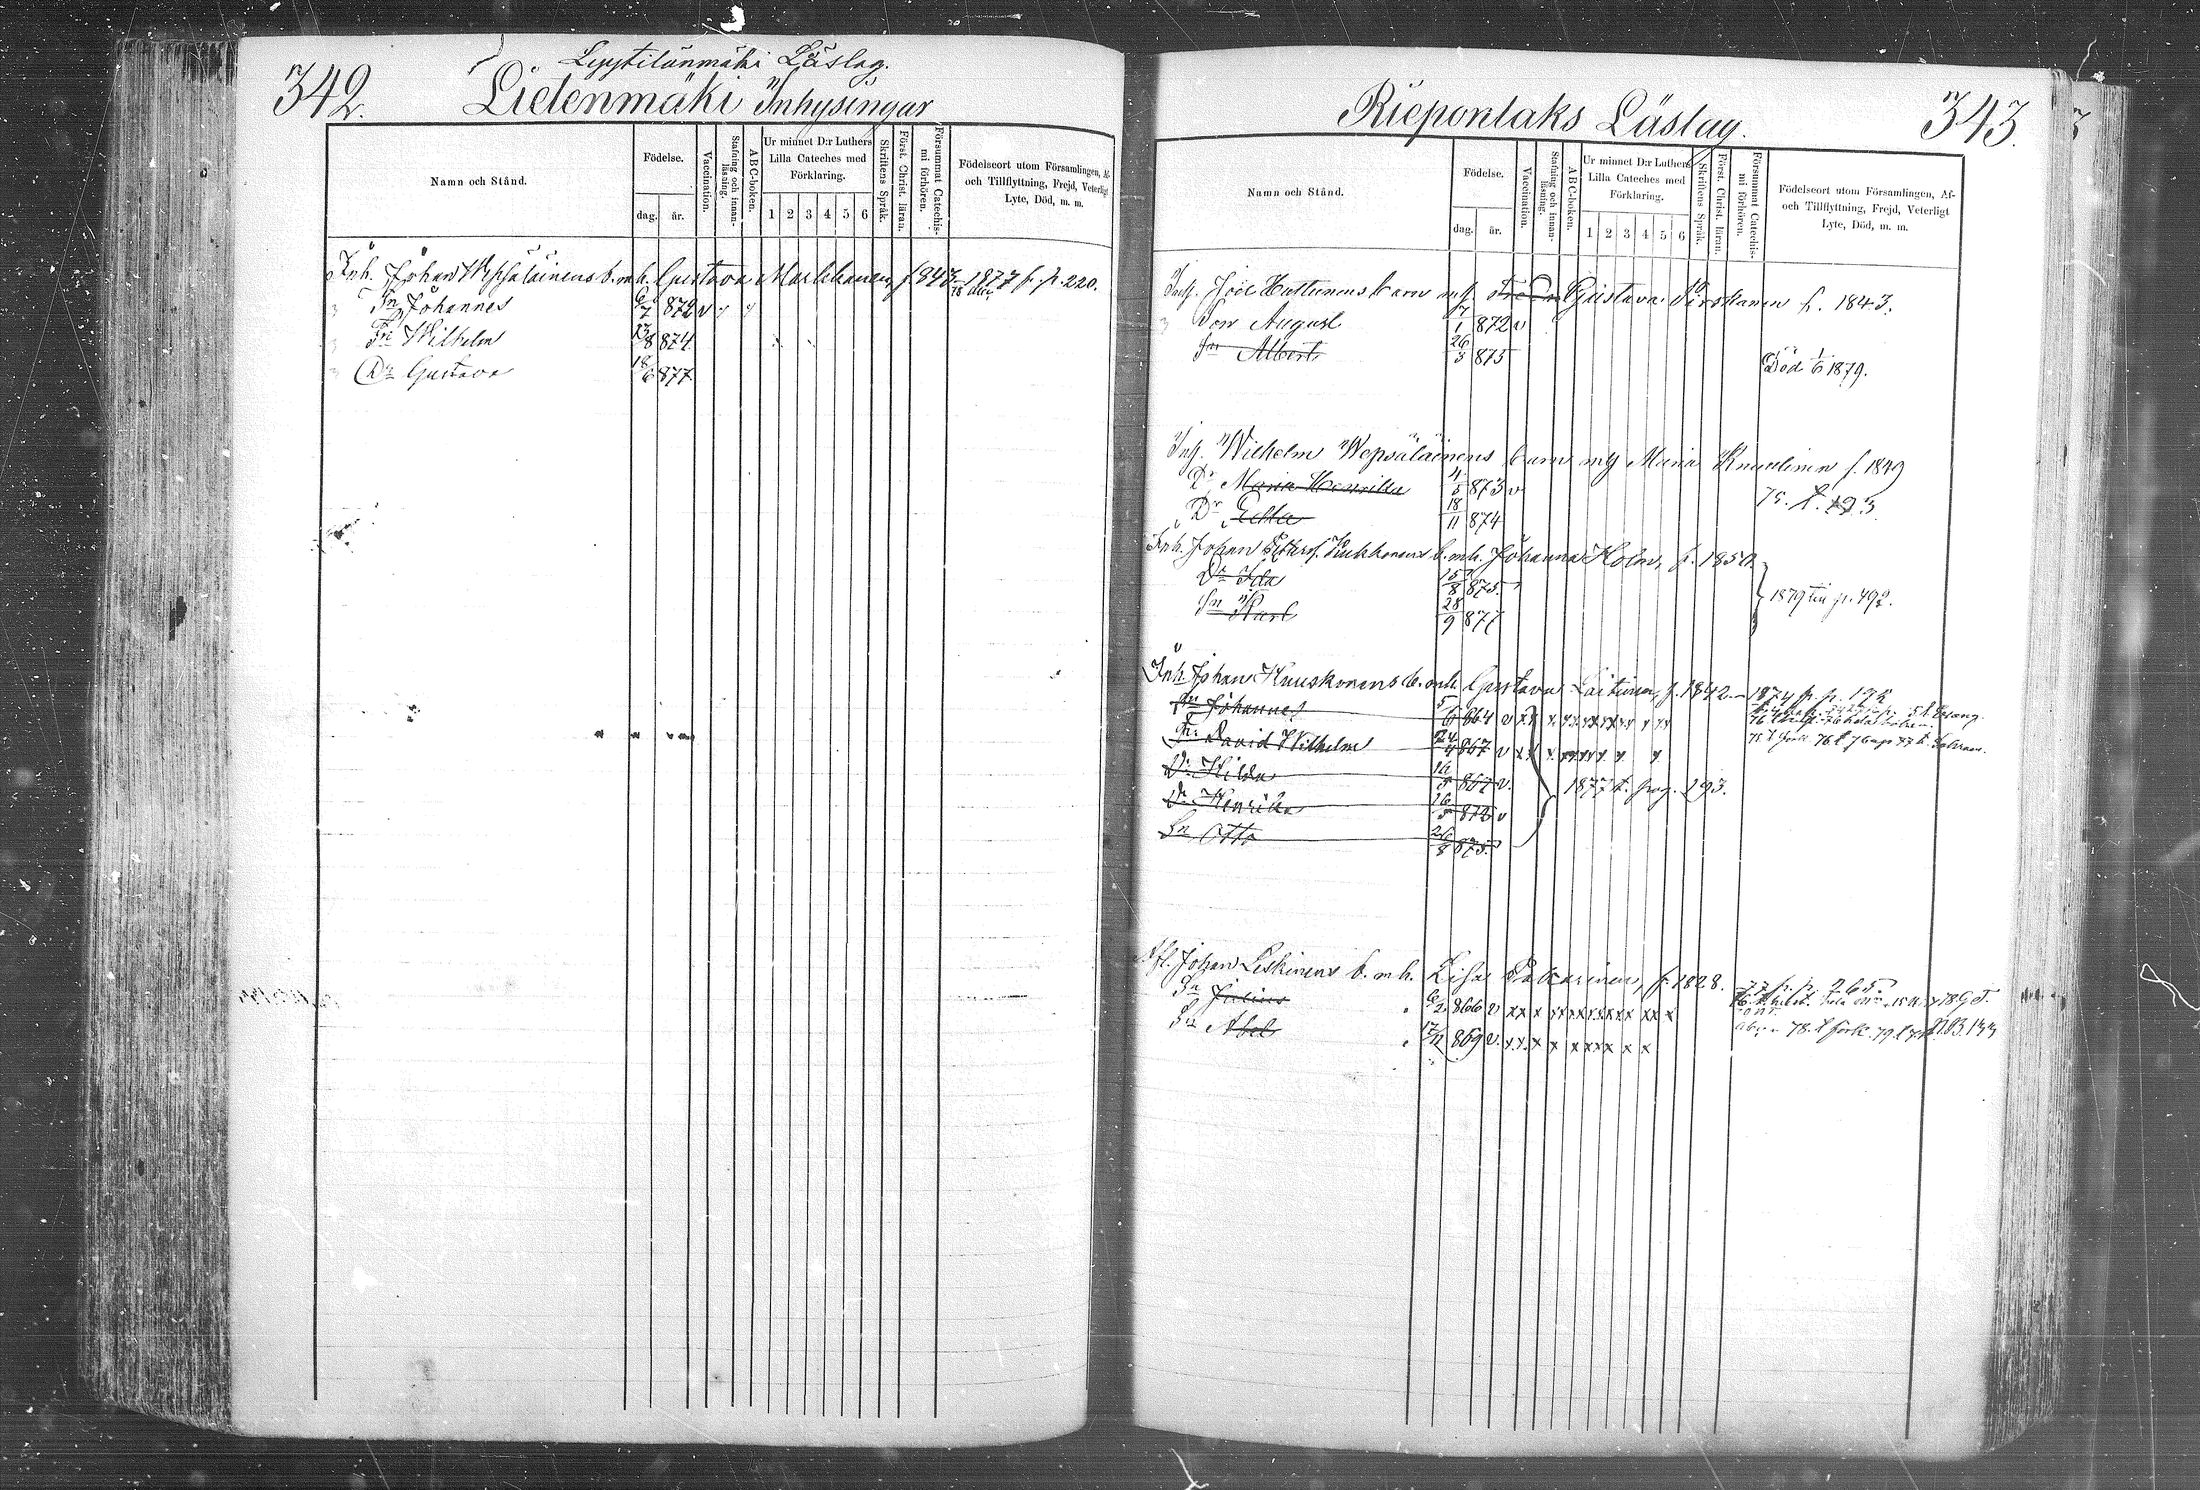 342.
Lyytilänmäki Läslag.
Lietenmäki Inhysingar
Namn och Stånd.
Födelse.
dag. år.
Vaccination.
Stafning och innan-läsning.
ABC-boken.
Ur minnet D:r Luthers
Lilla Cateches med
Förklaring.
1 2 3 4 5 6
Skriftens Språk.
Först. Christ. läran.
Försummat Catechis-mi förhören.
Födelseort utom Församlingen, Af-
och Tillflyttning, Frejd, Veterligt
Lyte, Död, m. m.
Inh. Johan Wepsäläinens b. m. h. Gustava Markkanen f. 843 1877 f. p. 220.
Sn Johannes 6/7 872 v
Sn Wilhelm 23/8 874
Dr Gustava 18/6 877
Rieponlaks Läslag.
343.
Namn och Stånd.
Födelse.
dag. år.
Vaccination.
Stafning och innan-läsning.
ABC-boken.
Ur minnet D:r Luthers
Lilla Cateches med
Förklaring.
1 2 3 4 5 6
Skriftens Språk.
Först. Christ. läran.
Försummat Catechis-mi förhören.
Födelseort utom Församlingen, Af-
och Tillflyttning, Frejd, Veterligt
Lyte, Död, m. m.
Inh. Joel Huttunens barn m. h. Gustava f. 1843.
Son August 7/1 872 v
Sn Albert 26/3 875 Död 1/6 1879.
Inh. Wilhelm Wepsäläinens barn m h Maria f. 1849
Dr Maria Henrika 4/5 873 v 75. t. 193
Dr 18/11 874
Inh. Johan b. m. h. Johanna Holm, f. 1850.
Dr Ida 15/8 875
1879 till p. 492.
Sn Karl 28/9 877
Inh. Johan Kuuskonens b. m. h. Gustava Laitinen, f. 1842 1874 fr. p.
Sn Johannes 5/6 864 v x x x x x x x x x x x
Sn David Wilhelm 24/4 867 v x x x x x x x x x
Dr Hilda 867 v. 1877 t. pag. 293.
Dr Henrika 16/5 872 v
Sn Otto 26/8 875.
Johan Leskinens b. m. h. Lisa Pakarinen, f. 1828. 77 fr. p. 265.
Sn Julius 6/2 866 v x x x x x x x x x x x
Sn Abel 17/11 869 v. x x x x x x x x x